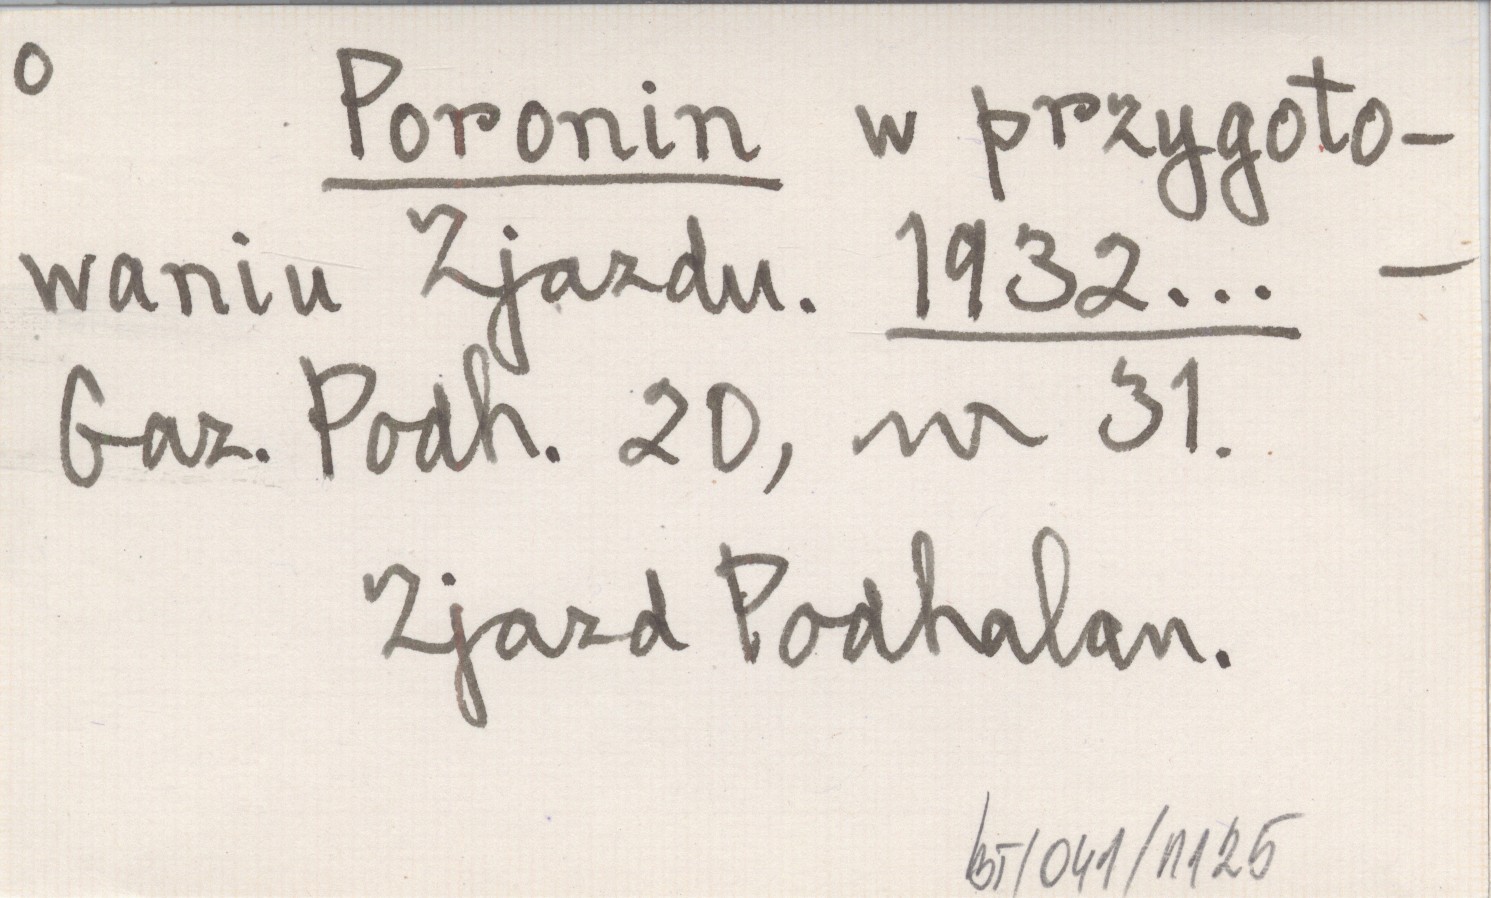 o Poronin w przygoto-
waniu Zjazdu. 1932... —
Gaz. Podh. 20, nr 31.
Zjazd Podhalan.
BT/041/1125